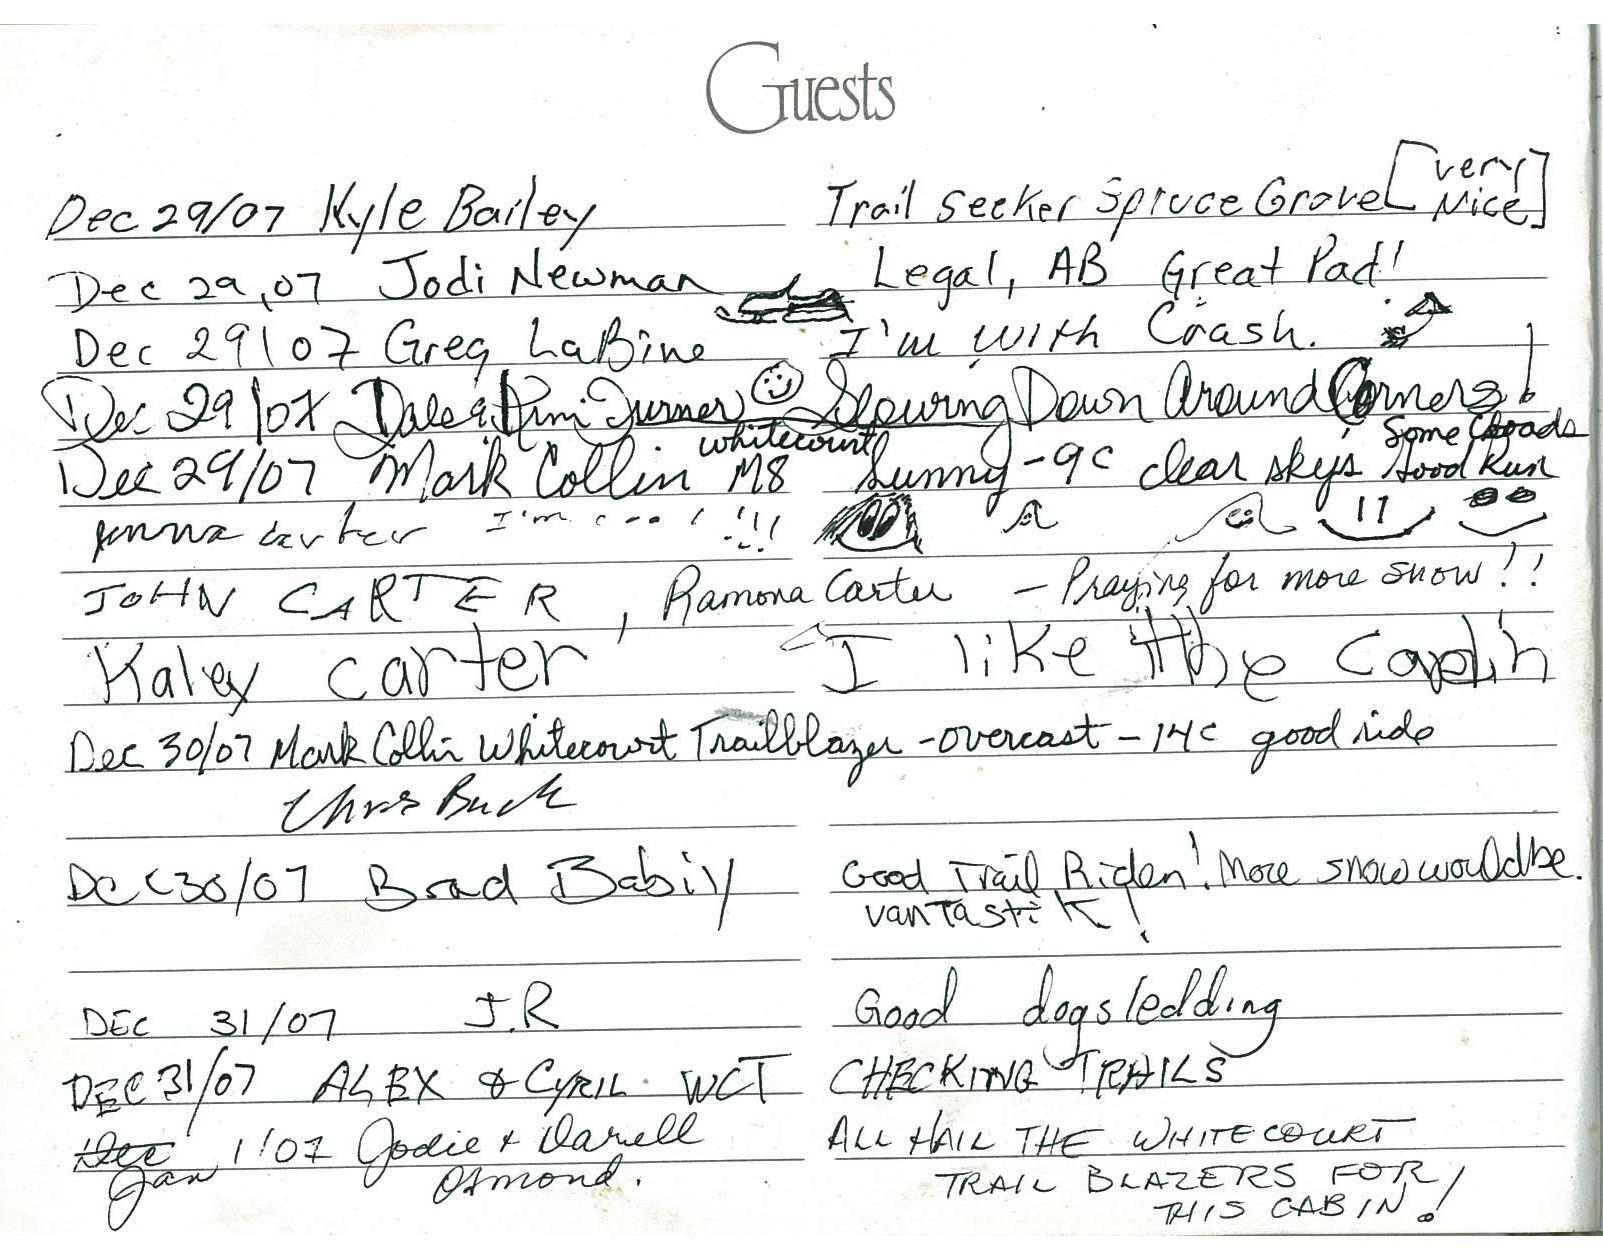 Guests
Dec 29/07 Kyle Bailey Trail Seeker Spruce Grove [very Nice]
Dec 29,07 Jodi Newman Legal, AB Great Pad!
Dec 29/07 Greg LaBine I'm with Crash.
Dec 29/07 Dale & Kimi Turner Slowing Down Around Corners!
Dec 29/07 Mark Collin whitecourt M8 Sunny -9c clear skys Some Good Run
jenna carter I'm cool !!!
JOHN CARTER, Ramona Carter - Praying for more snow!!
Kaley carter I like the cabin
Dec 30/07 Mark Collin Whitecourt Trailblazer - overcast - 14c good ride
Chris Buck
Dec 30/07 Brad Babiy Good Trail Riden! More snow would be.
vanTastiK!
DEC 31/07 J.R Good dogsledding
DEC 31/07 ALEX & CYRIL WCT CHECKING TRAILS
Dec Jan 1/07 Jodie + Darrell ALL HAIL THE WHITECOURT
Osmond. TRAIL BLAZERS FOR
THIS CABIN!